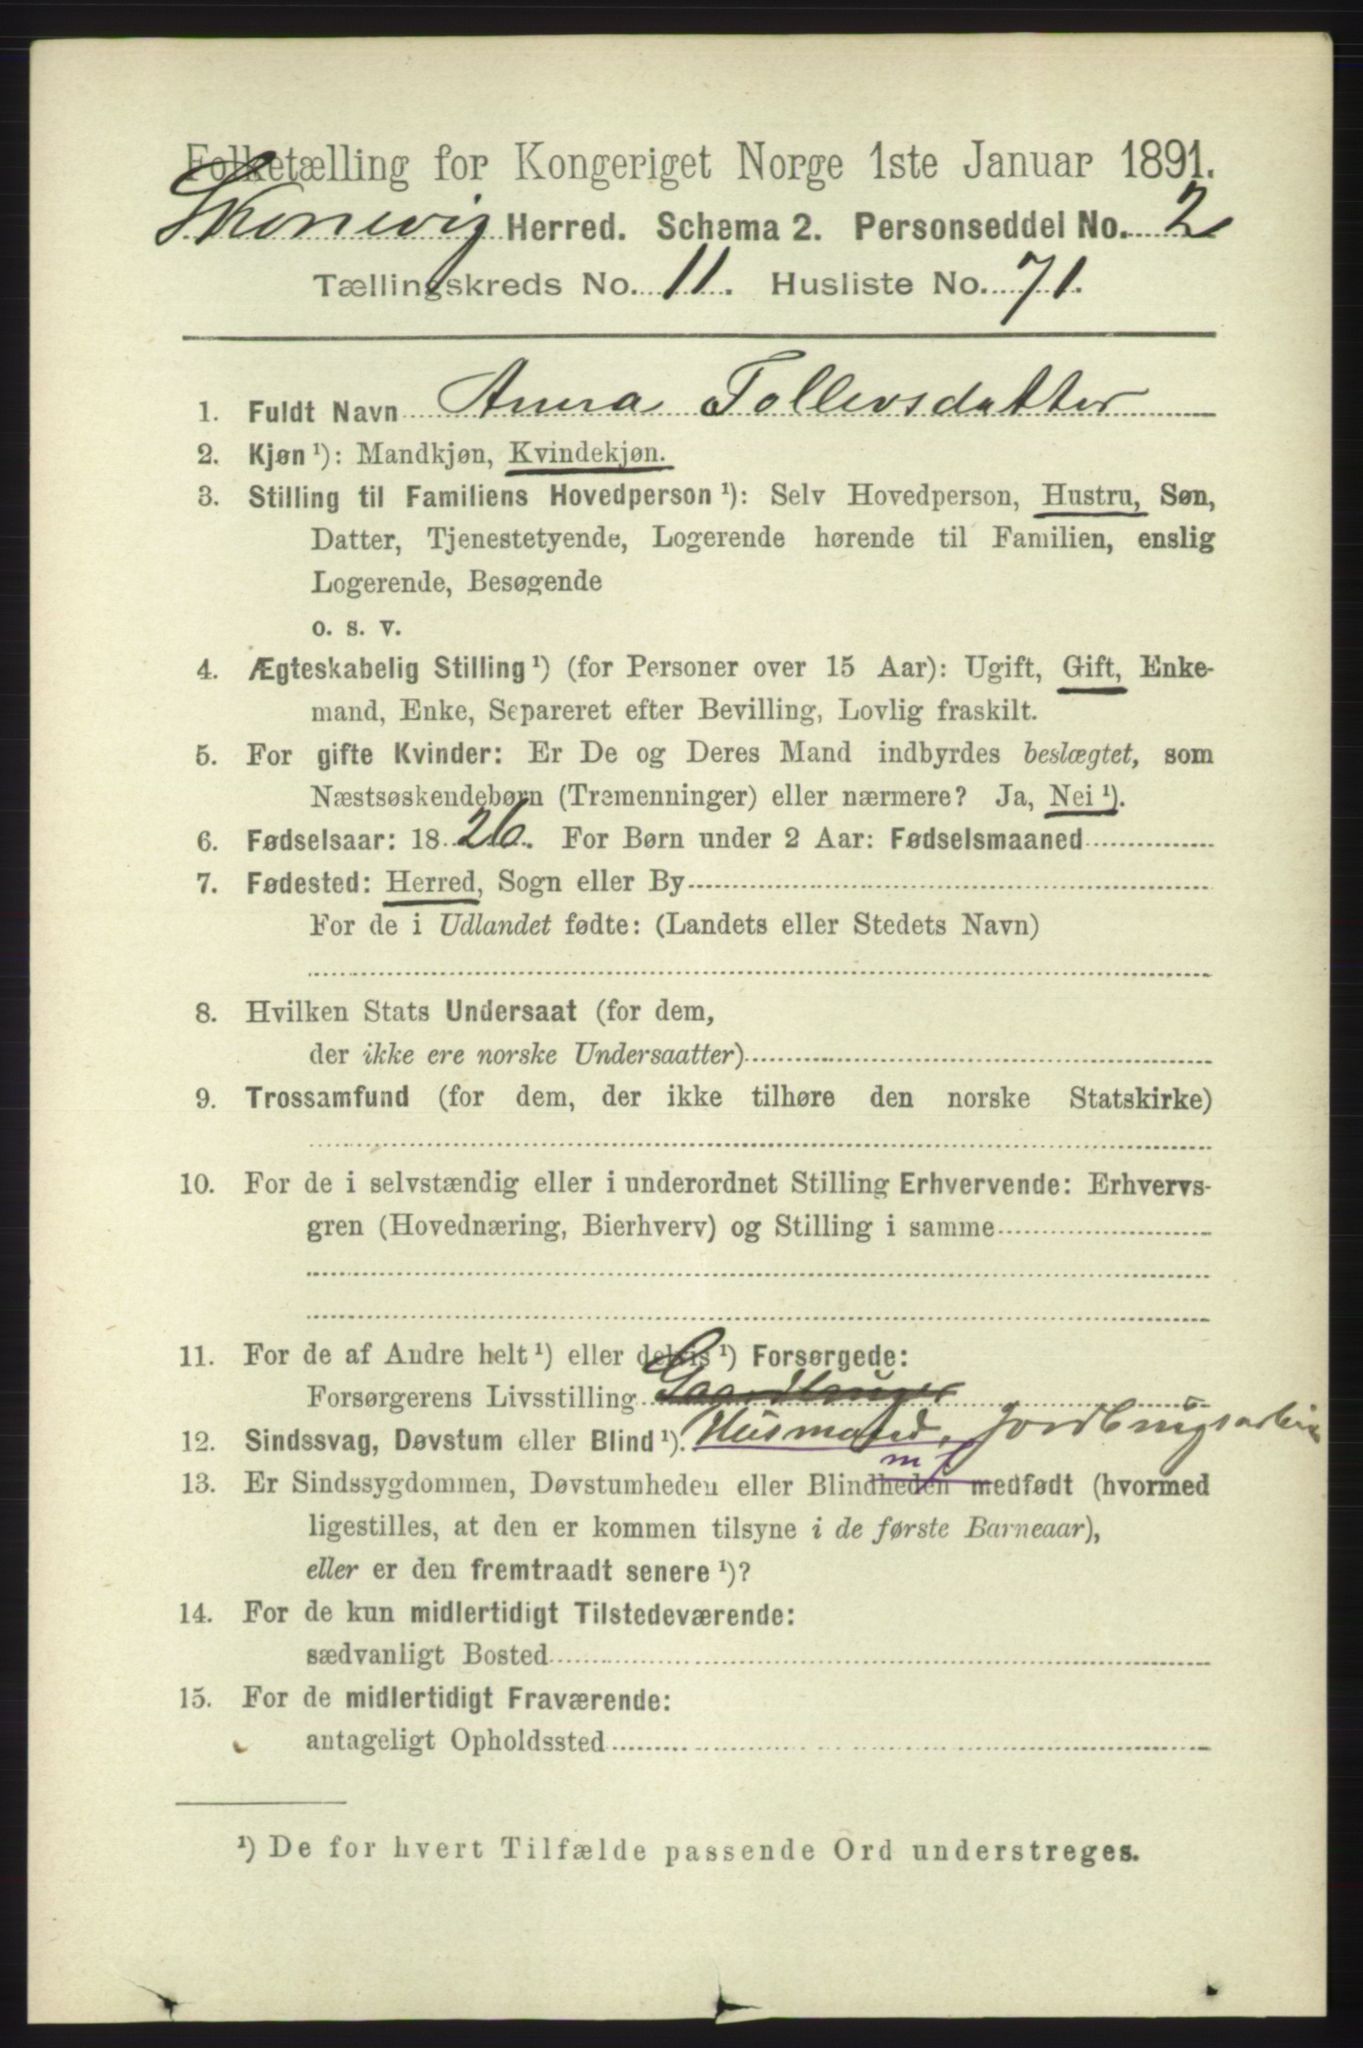 Folketælling for Kongeriget Norge 1ste Januar 1891.
Skonevig Herred. Schema 2. Personseddel No. 2
Tællingskreds No. 11. Husliste No. 71.
1. Fuldt Navn Anna Tollevsdatter
2. Kjøn ¹): Mandkjøn, Kvindekjøn.
3. Stilling til Familiens Hovedperson ¹): Selv Hovedperson, Hustru, Søn,
Datter, Tjenestetyende, Logerende hørende til Familien, enslig
Logerende, Besøgende
o. s. v.
4. Ægteskabelig Stilling ¹) (for Personer over 15 Aar): Ugift, Gift, Enke-
mand, Enke, Separeret efter Bevilling, Lovlig fraskilt.
5. For gifte Kvinder: Er De og Deres Mand indbyrdes beslægtet, som
Næstsøskendebørn (Tremenninger) eller nærmere? Ja, Nei ¹).
6. Fødselsaar: 1826. For Børn under 2 Aar: Fødselsmaaned
7. Fødested: Herred, Sogn eller By
For de i Udlandet fødte: (Landets eller Stedets Navn)
8. Hvilken Stats Undersaat (for dem,
der ikke ere norske Undersaatter)
9. Trossamfund (for dem, der ikke tilhøre den norske Statskirke)
10. For de i selvstændig eller i underordnet Stilling Erhvervende: Erhvervs-
gren (Hovednæring, Bierhverv) og Stilling i samme
11. For de af Andre helt ¹) eller delvis ¹) Forsørgede:
Forsørgerens Livsstilling Gaardbruger
12. Sindssvag, Døvstum eller Blind ¹). Husmand, Jordbrugsarbei
m f
13. Er Sindssygdommen, Døvstumheden eller Blindheden medfødt (hvormed
ligestilles, at den er kommen tilsyne i de første Barneaar),
eller er den fremtraadt senere ¹)?
14. For de kun midlertidigt Tilstedeværende:
sædvanligt Bosted
15. For de midlertidigt Fraværende:
antageligt Opholdssted
¹) De for hvert Tilfælde passende Ord understreges.